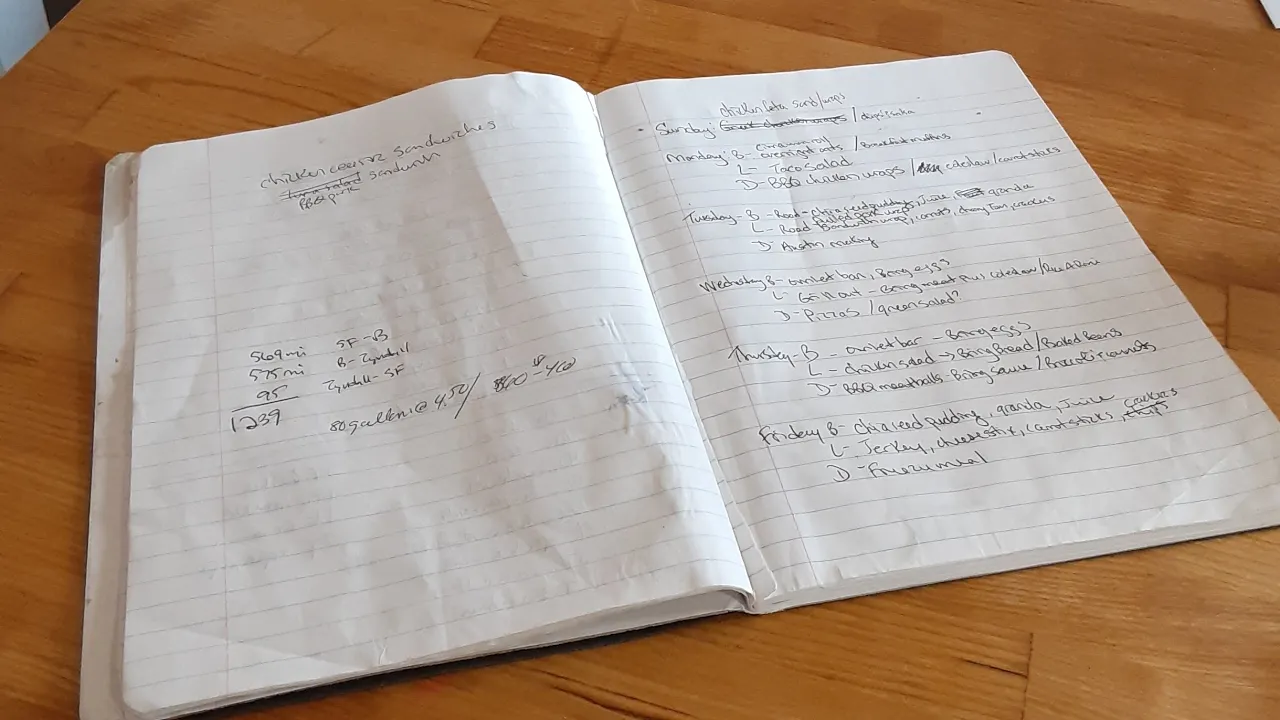 chicken caesar sandwiches
sandwich
BBQ pork
569 mi SF-B
575 mi B-Tyndall
95 Tyndall-SF
1239
80 gallons @ 4.50/ 400
chicken feta sand/wraps
Sunday: /
Monday B- overnight oats / Breakfast muffins
L- Taco Salad
D- BBQ chicken wraps / coleslaw/carrot sticks
Tuesday- B - Road - chia seed pudding, juice, granola
L- Road wrap, carrots, crackers
D- Austin
Wednesday B- omlet bar, Bring eggs
L- Grill out - Bring meat coleslaw/
D- Pizzas / green salad?
Thursday- B- omlet bar - Bring eggs
L- chicken salad → Bring Bread / Baked Beans
D- BBQ meatballs - Bring sauce / Broccoli
Friday B- chia seed pudding, granola, juice
L- Jerky, cheese stix, carrot sticks, crackers chips
D- Freezer meal